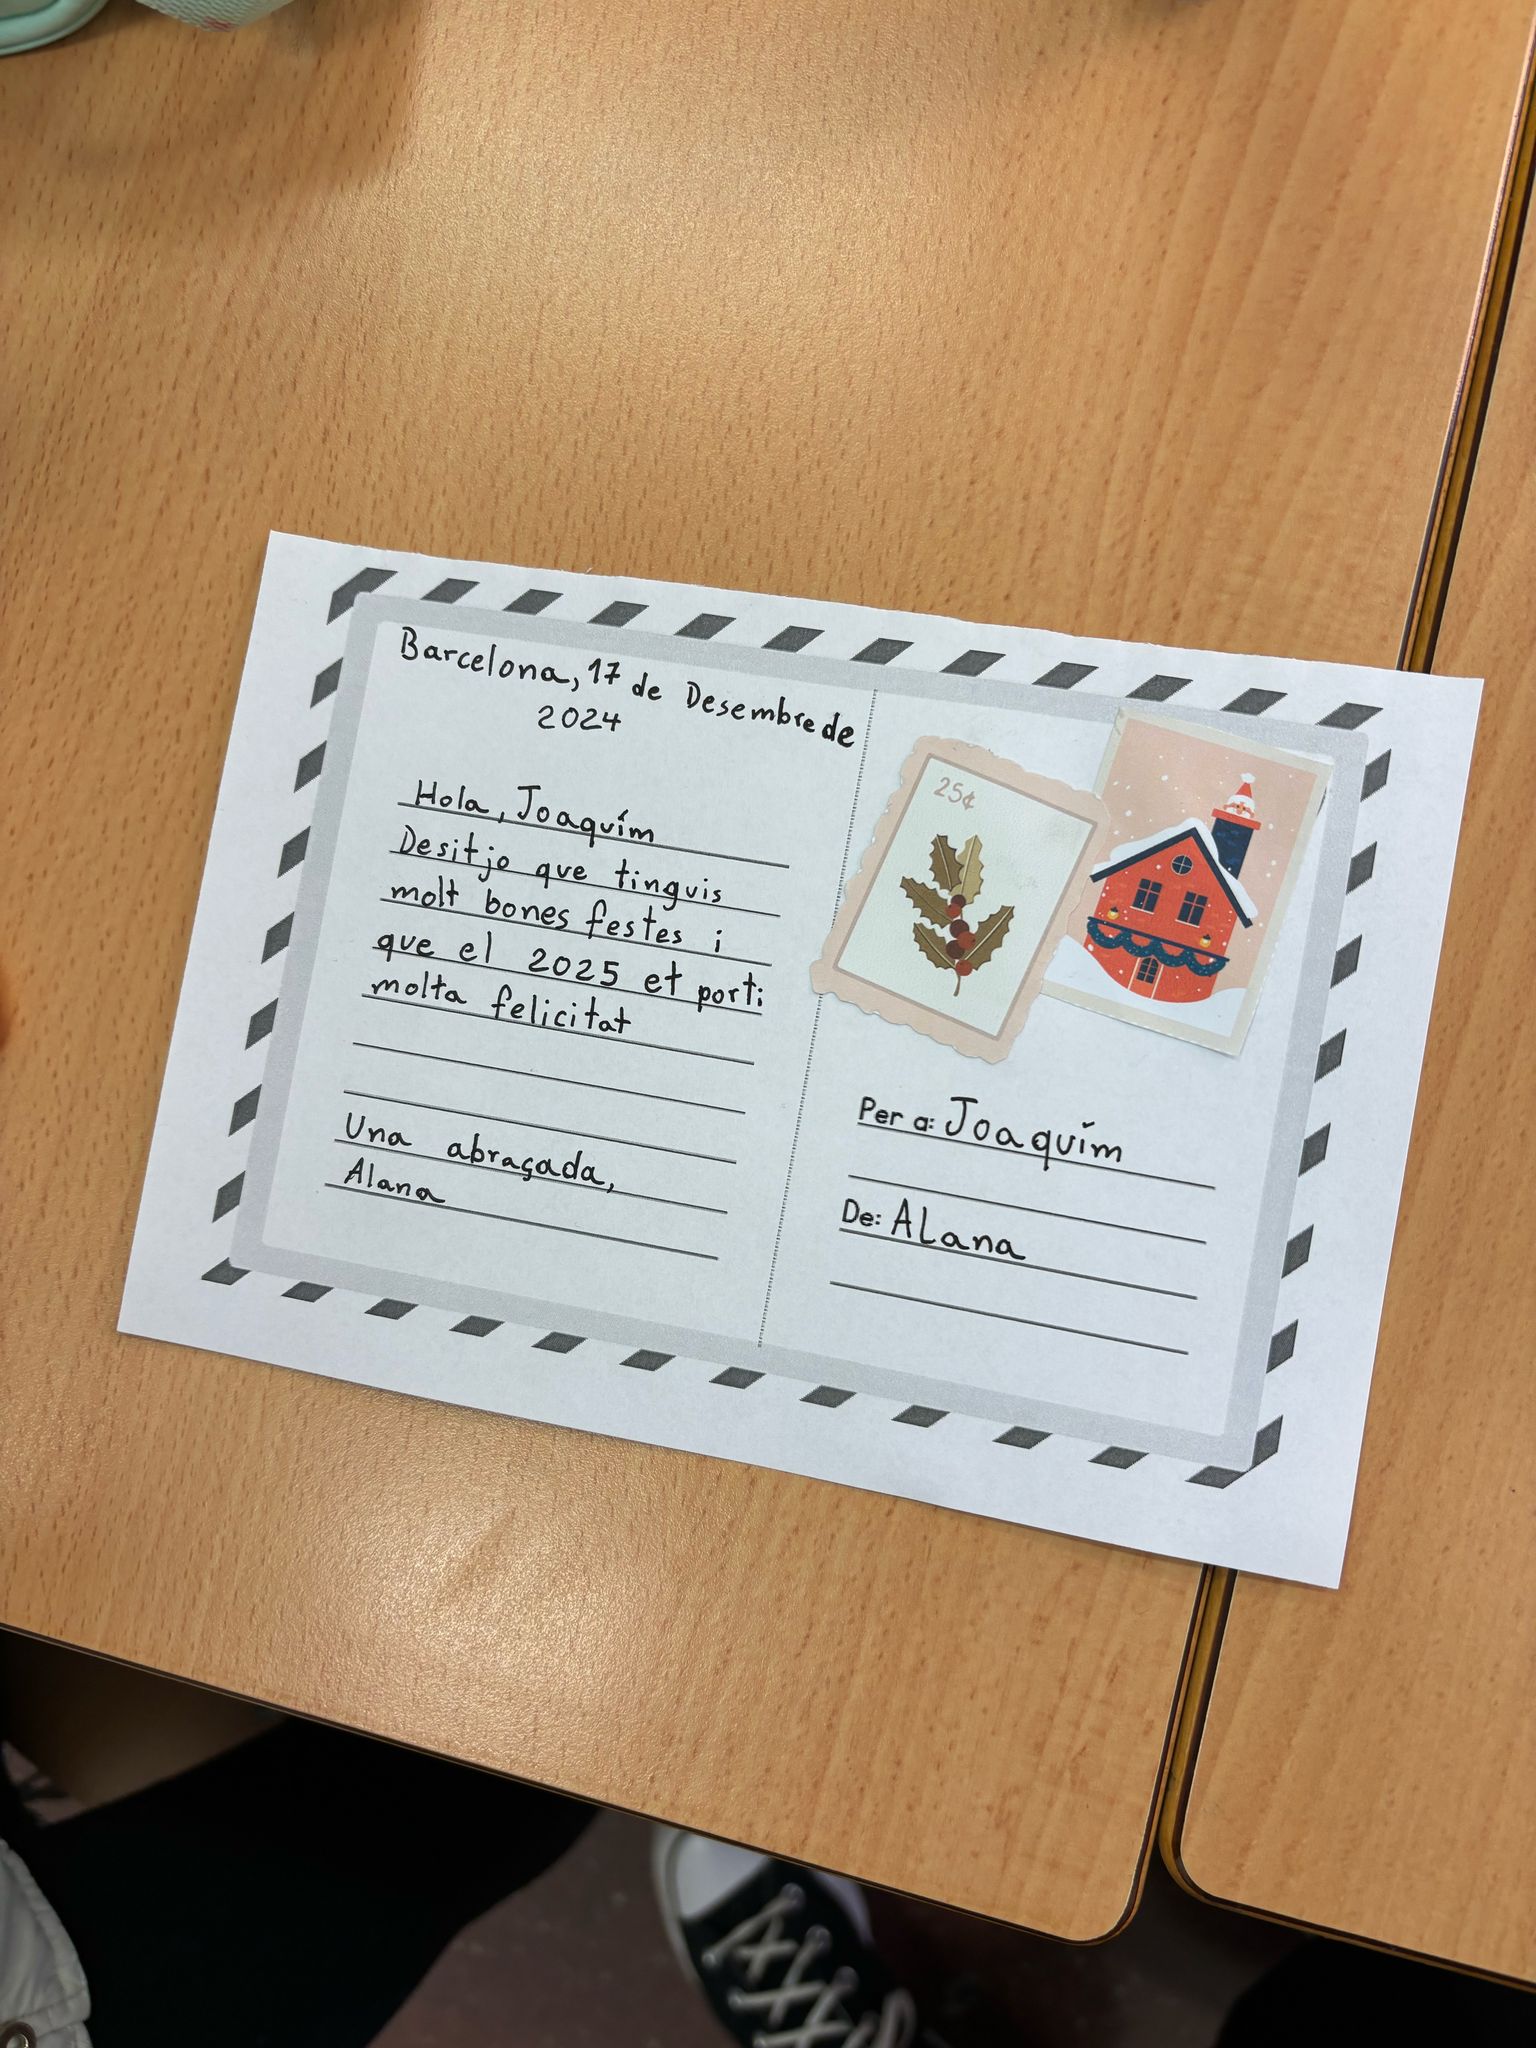 Barcelona, 17 de Desembre de
2024
Hola, Joaquím
Desitjo que tinguis
molt bones festes i
que el 2025 et porti
molta felicitat
Una abraçada,
Alana
25¢
Per a: Joaquím
De: ALana